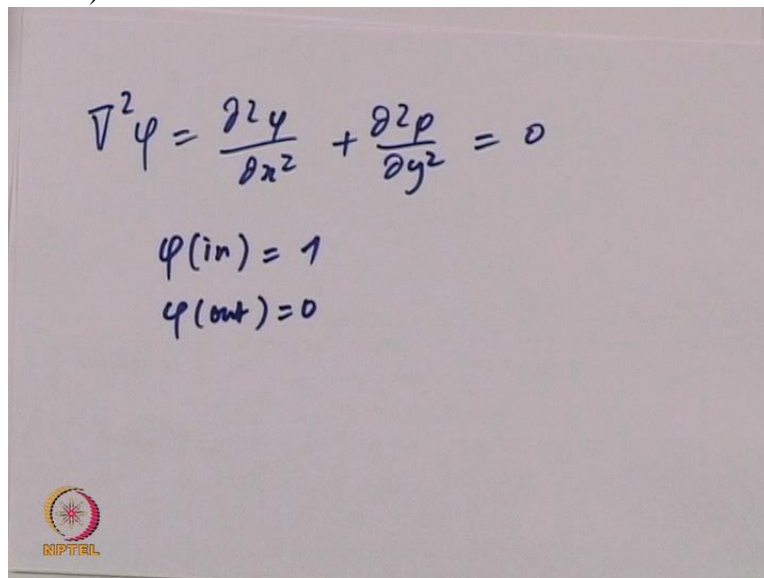 )
∇²φ = ∂²φ/∂x² + ∂²φ/∂y² = 0
φ(in) = 1
φ(out) = 0
NPTEL